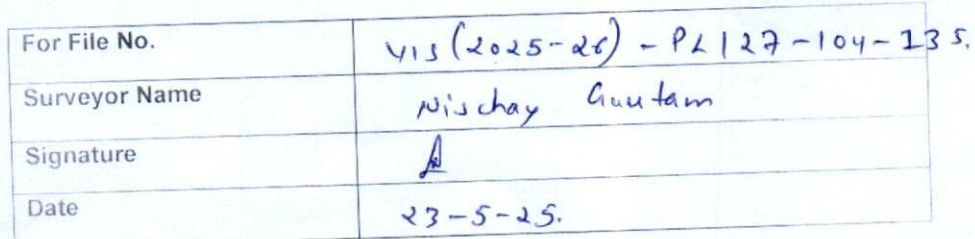 For File No. VIS (2025-26) - PL127-104-135.
Surveyor Name Nischay Gautam
Signature
Date 23-5-25.